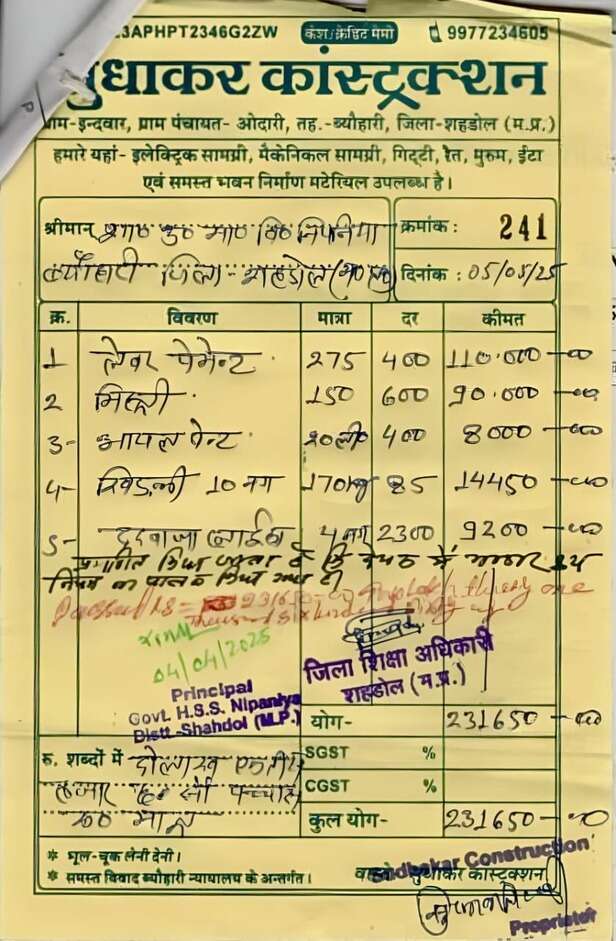 23APHPT2346G2ZW कैश/क्रेडिट मेमो 9977234605
सुधाकर कांस्ट्रक्शन
ग्राम-इन्दवार, ग्राम पंचायत- ओदारी, तह.-ब्यौहारी, जिला-शहडोल (म.प्र.)
हमारे यहां- इलेक्ट्रिक सामग्री, मैकेनिकल सामग्री, गिट्टी, रेत, मुरुम, ईटा
एवं समस्त भवन निर्माण मटेरियल उपलब्ध है।
श्रीमान् क्रमांक : 241
ब्यौहारी जिला - शहडोल (म०प्र०) दिनांक : 05/05/25
क्र. विवरण मात्रा दर कीमत
1 लेबर पेमेन्ट 275 400 110.000-00
2 मिस्त्री 150 600 90.000-00
3- आयल पेन्ट 20ली० 400 8000-00
4- खिड़की 10 नग 170kg 85 14450-00
5- दरवाजा 4 नग 2300 9200-00
प्रमाणित किया जाता है कि में
नियम का पालन किया गया है।
Passed Rs = 231650
04/04/2025
Principal
Govt. H.S.S. Nipaniya
Distt.-Shahdol (M.P.)
जिला शिक्षा अधिकारी
शहडोल (म.प्र.)
योग- 231650-00
रु. शब्दों में दो लाख एकतीस
हजार छः सौ पच्चास
रु० मात्र
SGST %
CGST %
कुल योग- 231650-00
* भूल-चूक लेनी देनी।
* समस्त विवाद ब्यौहारी न्यायालय के अन्तर्गत।
वास्ते सुधाकर कांस्ट्रक्शन
Sudhakar Construction
Proprietor